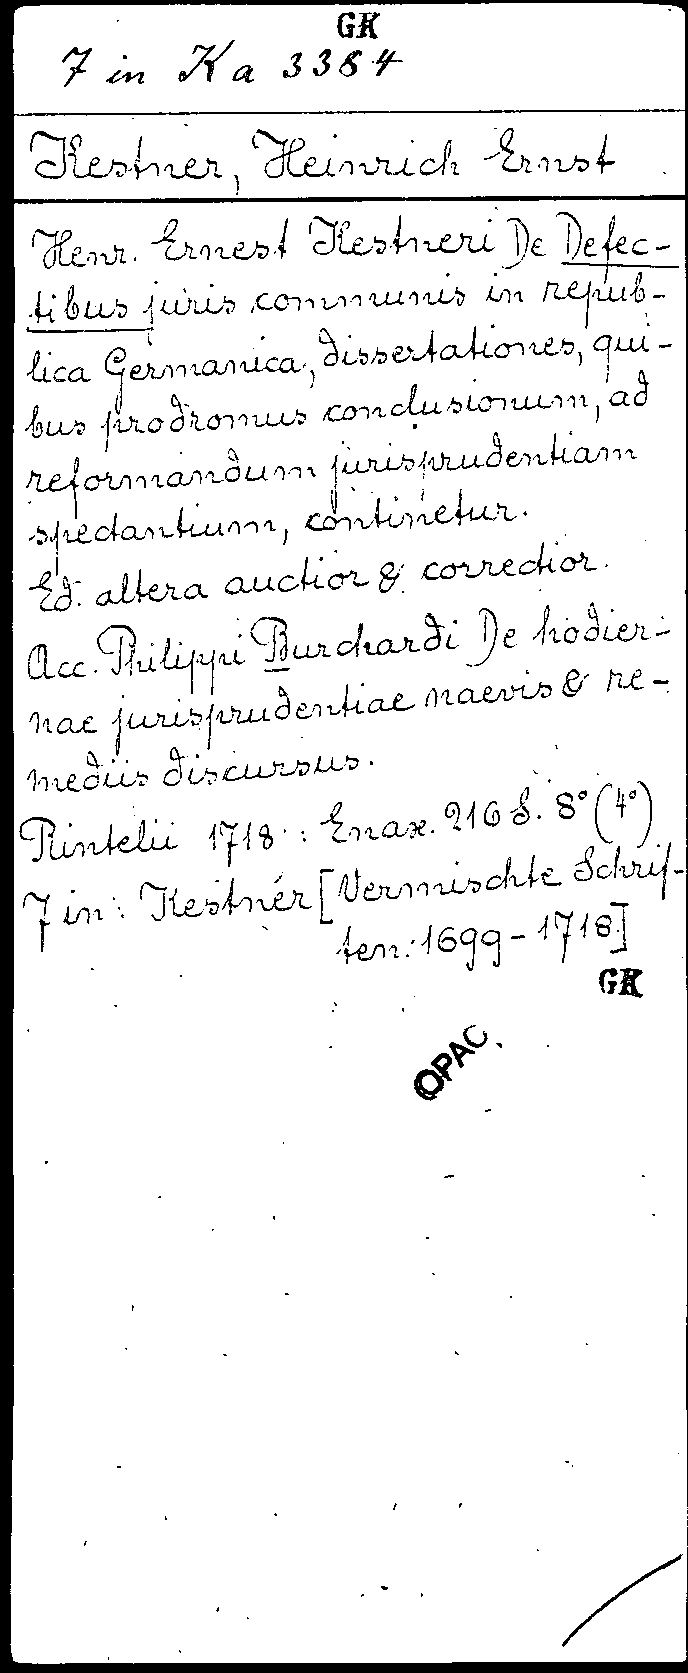 GK
7 in Ka 3384
Kestner, Heinrich Ernst
Henr. Ernest Kestneri De Defec-
tibus juris communis in repub-
lica Germanica, dissertationes, qui-
bus prodromus conclusionum, ad
reformandum jurisprudentiam
spectantium, continetur.
Ed. altera auctior & correctior.
Acc. Philippi Burchardi De hodier-
nae jurisprudentiae naevis & re-
mediis discursus.
Rintelii 1718: Enax. 216 S. 8° (4°)
7 in: Kestner [Vermischte Schrif-
ten. 1699-1718]
GK
OPAC